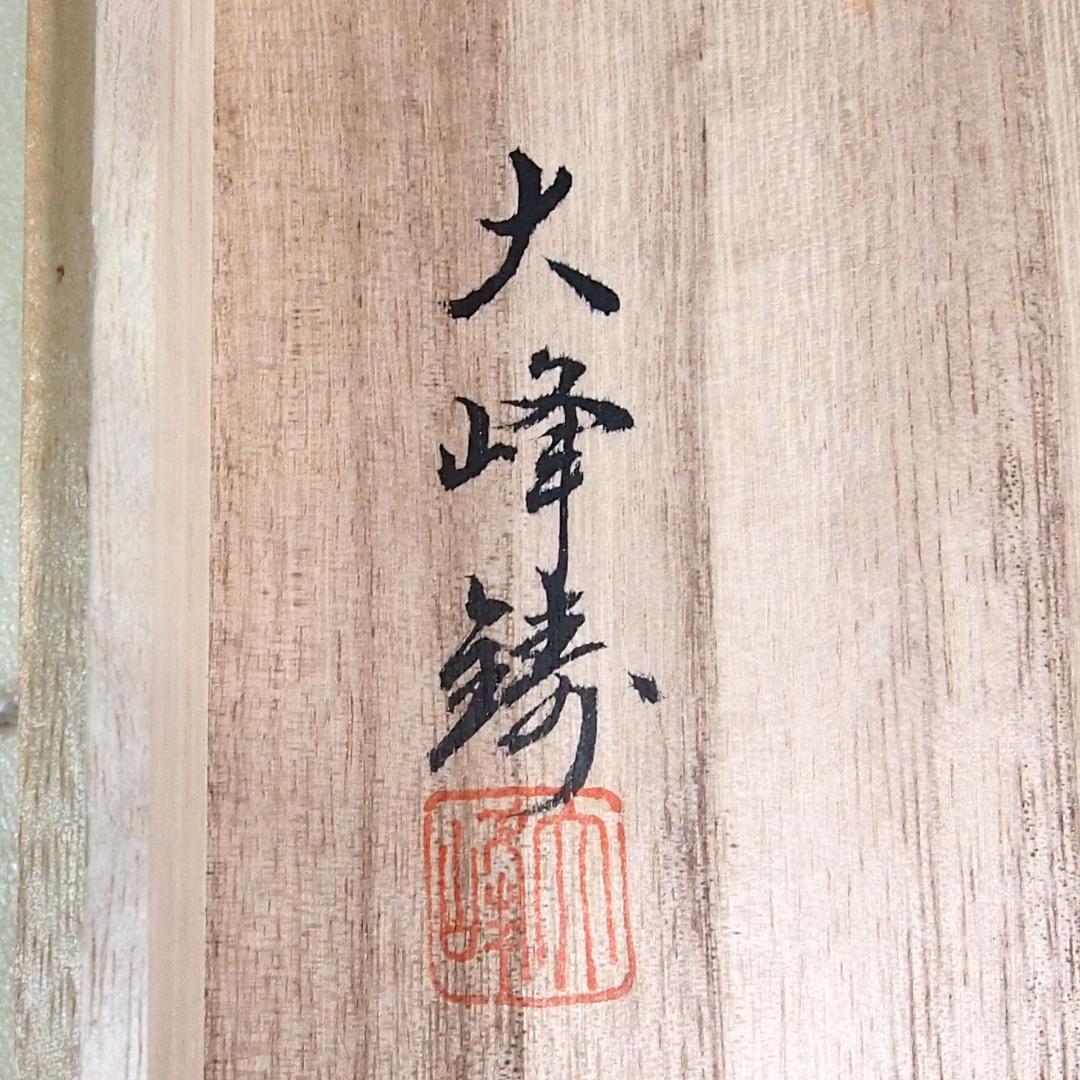 大峰鋳
大峰